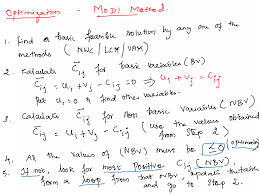 Optimization - MODI Method.
1. Find a basic feasible solution by any one of the
methods ( NWC / LCM / VAM )
2. Calculate C̄ij for basic variables (BV)
C̄ij = Ui + Vj - Cij = 0 ⇒ Ui + Vj = Cij
Put U1 = 0 & find other variables.
3. Calculate C̄ij for Non basic variables (NBV)
C̄ij = Ui + Vj - Cij ( use the values obtained
from Step 2 )
4. All the values of (NBV) must be ≤ 0
5. If not, look for most Positive C̄ij (NBV),
form a loop from that NBV, update the table
and go to Step 2.